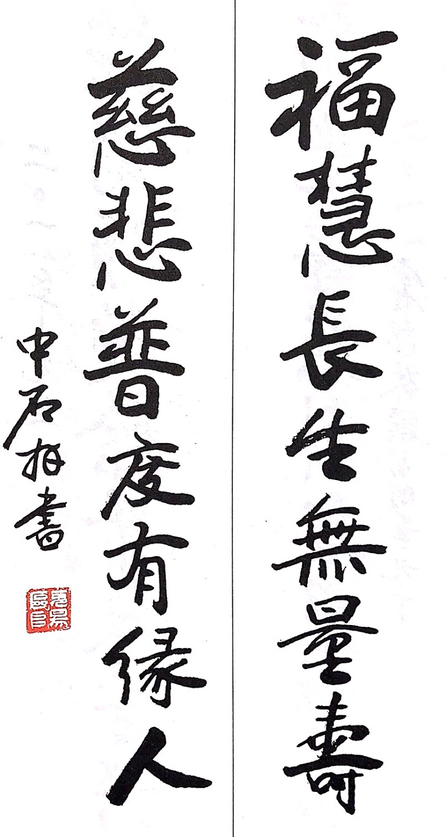 福慧長生無量壽
慈悲普度有緣人
中石拜書